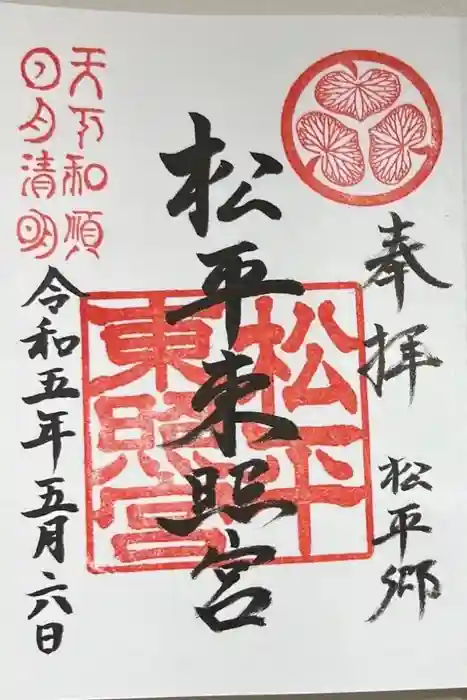 奉拝
松平郷
松平東照宮
松平
東照宮
天下和順
日月清明
令和五年五月六日